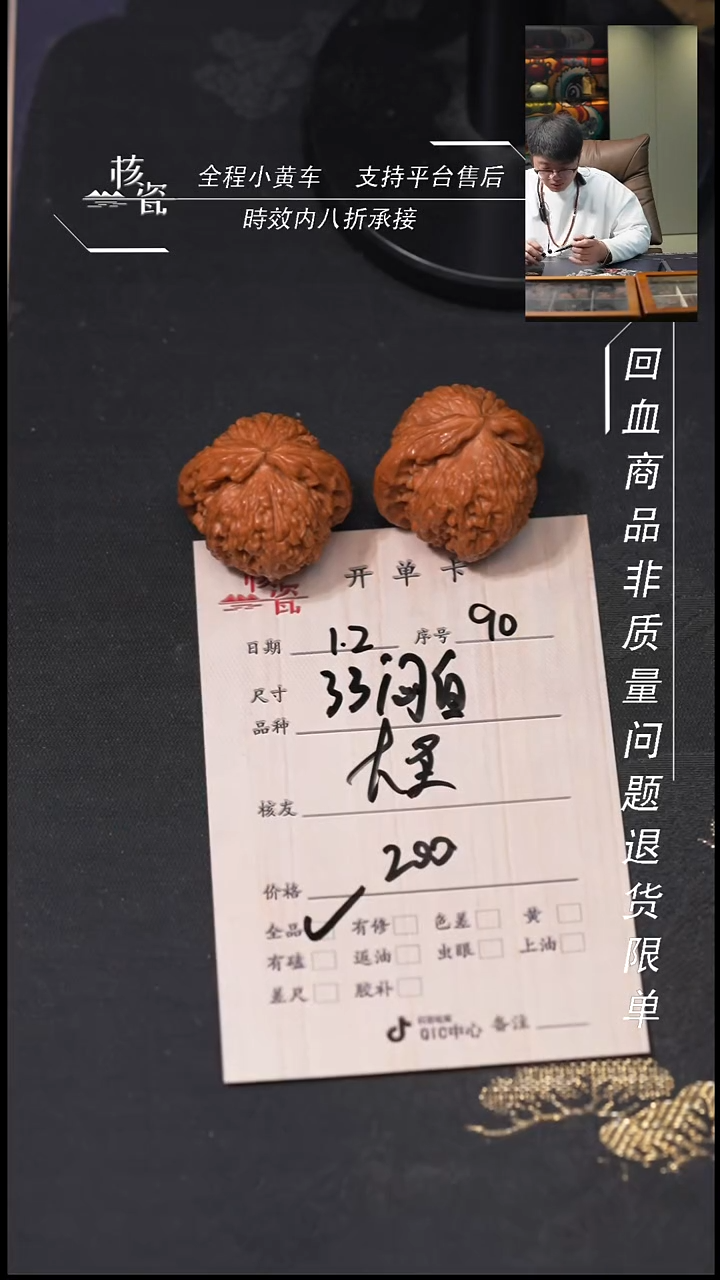 核瓷
全程小黄车 支持平台售后
時效内八折承接
回血商品非质量问题退货限单
核瓷 开单卡
日期 1.2 序号 90
尺寸 33闷
品种
核友 大圣
价格 200
全品 ✓ 有修 色差 黄
有磕 返油 虫眼 上油
差尺 胶补
QIC中心 备注